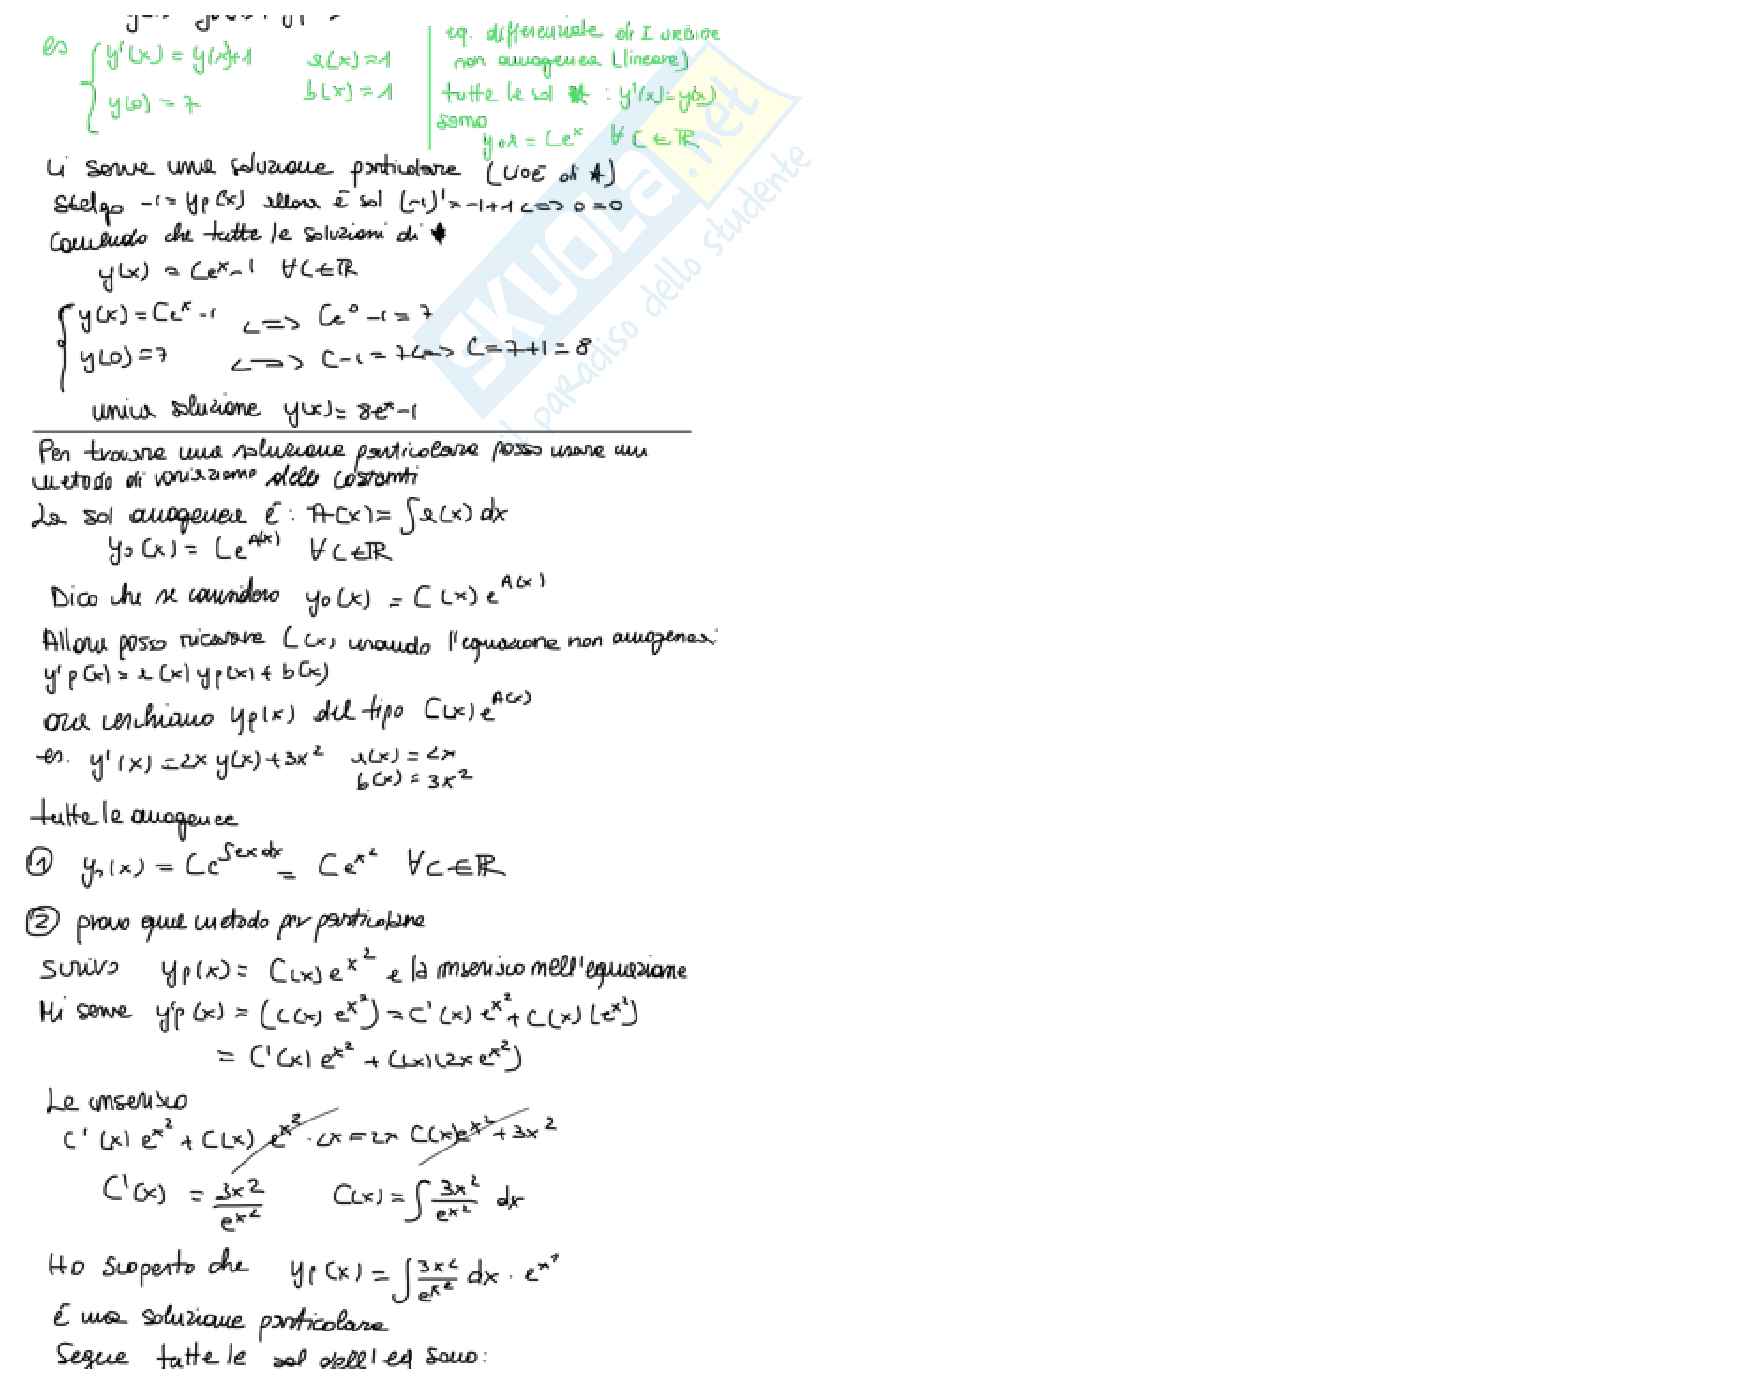 es { y'(x) = y(x)+1   a(x)=1
y(0) = 7   b(x)=1
eq. differenziale di I ordine
non omogenea (lineare)
tutte le sol * : y'(x)=y(x)
sono
C e^x ∀ C ∈ ℝ
Ci serve una soluzione particolare (cioè di *)
Scelgo -1 = yp(x) allora è sol (-1)' = -1+1 <=> 0=0
che tutte le soluzioni di *
y(x) = Ce^x-1 ∀C∈ℝ
{ y(x)=Ce^x-1 <=> Ce^0-1=7
y(0)=7 <=> C-1=7 <=> C=7+1=8
unica soluzione y(x)= 8e^x-1
Per trovare una soluzione particolare posso usare un
metodo di variazione delle costanti
La sol omogenea è: A(x)=∫a(x) dx
y0(x) = Ce^A(x) ∀C∈ℝ
Dico che se considero y0(x) = C(x) e^A(x)
Allora posso ricavare C(x) usando l'equazione non omogenea:
y'p(x)=a(x) yp(x)+b(x)
ora cerchiamo yp(x) del tipo C(x) e^A(x)
es. y'(x)=2x y(x)+3x²   a(x)=2x
b(x)=3x²
tutte le omogenee
① y0(x) = Ce^∫2xdx = Ce^x² ∀C∈ℝ
② provo metodo per particolare
scrivo yp(x)= C(x) e^x² e la inserisco nell'equazione
Mi serve y'p(x) = (C(x) e^x²)=C'(x) e^x²+C(x)(e^x²)
= C'(x) e^x² + C(x)(2x e^x²)
La inserisco
C'(x) e^x² + C(x) e^x² · 2x = 2x C(x)e^x² + 3x²
C'(x) = 3x²/e^x²   C(x)=∫ 3x²/e^x² dx
Ho scoperto che yp(x)=∫ 3x²/e^x² dx · e^x²
È una soluzione particolare
Segue tutte le sol dell'eq sono:
SKUOLA.net
il paradiso dello studente